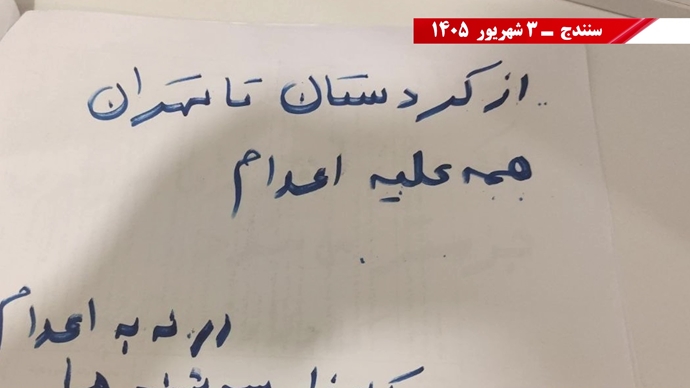 سنندج ــ ۳ شهریور ۱۴۰۵
از کردستان تا تهران
همه علیه اعدام
در نه به اعدام